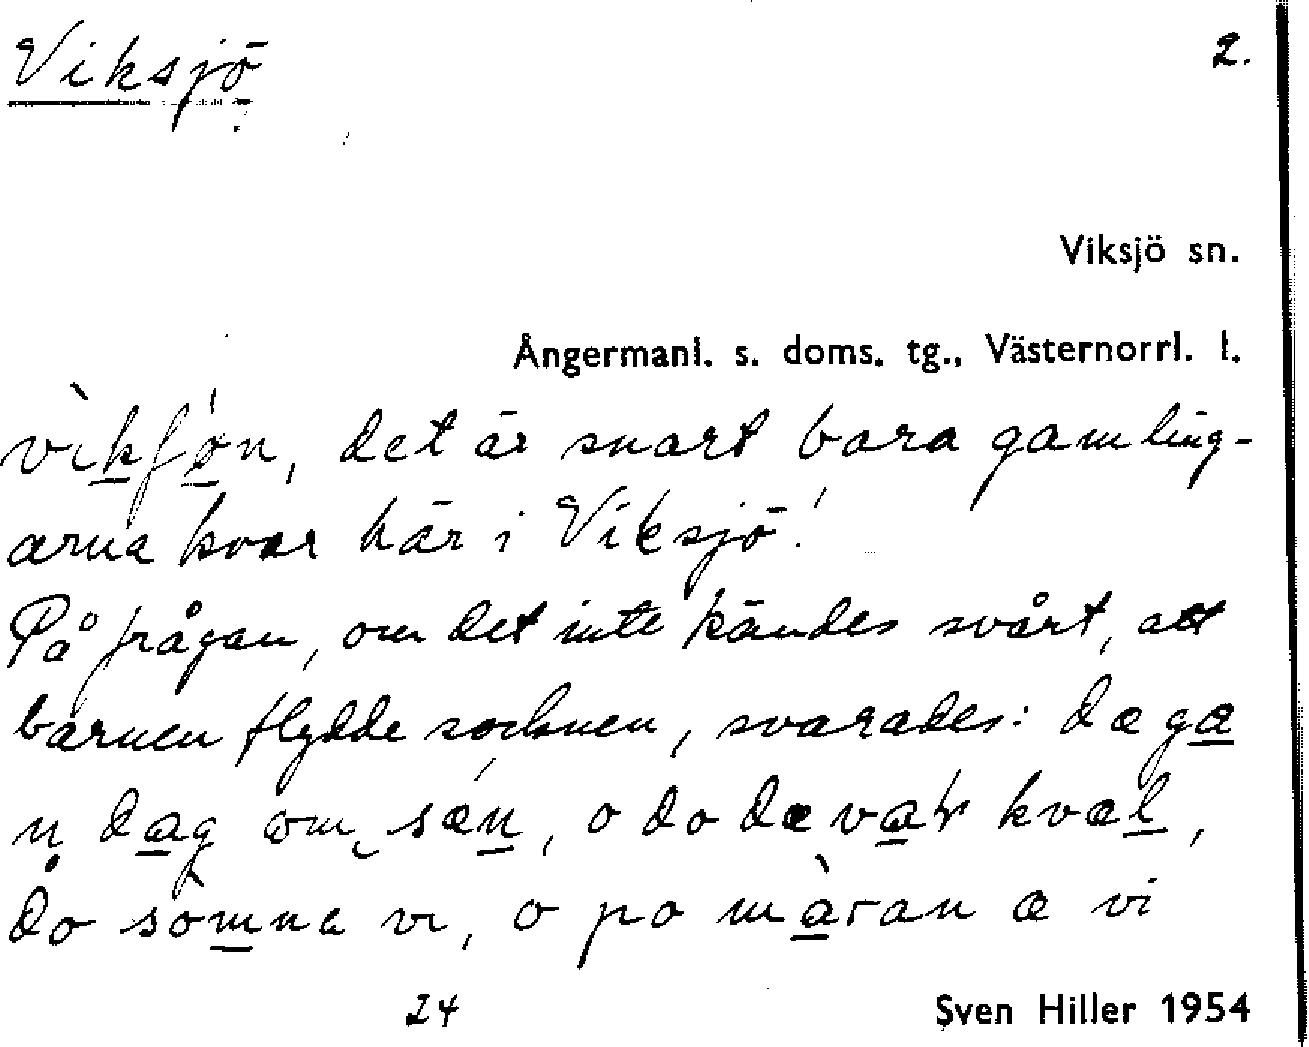 Viksjö 2.
Viksjö sn.
Ångermanl. s. doms. tg., Västernorrl. l.
vìkʃøn, det är snart bara gamling-
arna kvar här i Viksjö!
På frågan, om det inte kändes svårt, att
barnen flydde socknen, svarades: dæ gæ
n dag om sæn, o do dæ var kvæl,
do sòmna vi, o po màran æ vi
24 Sven Hiller 1954